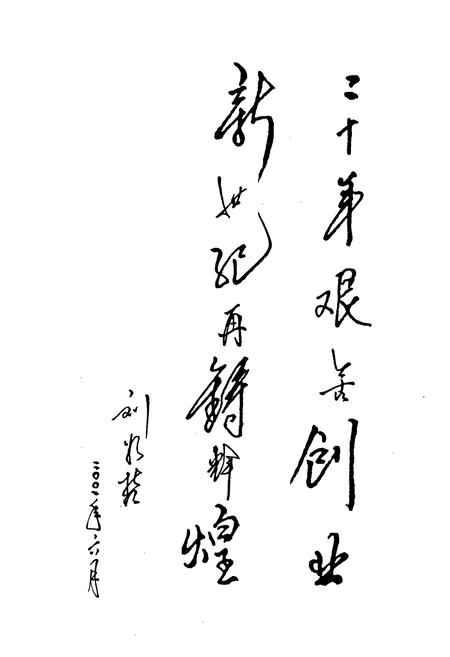 二十年艰苦创业
新世纪再铸辉煌
刘
二〇〇一年六月